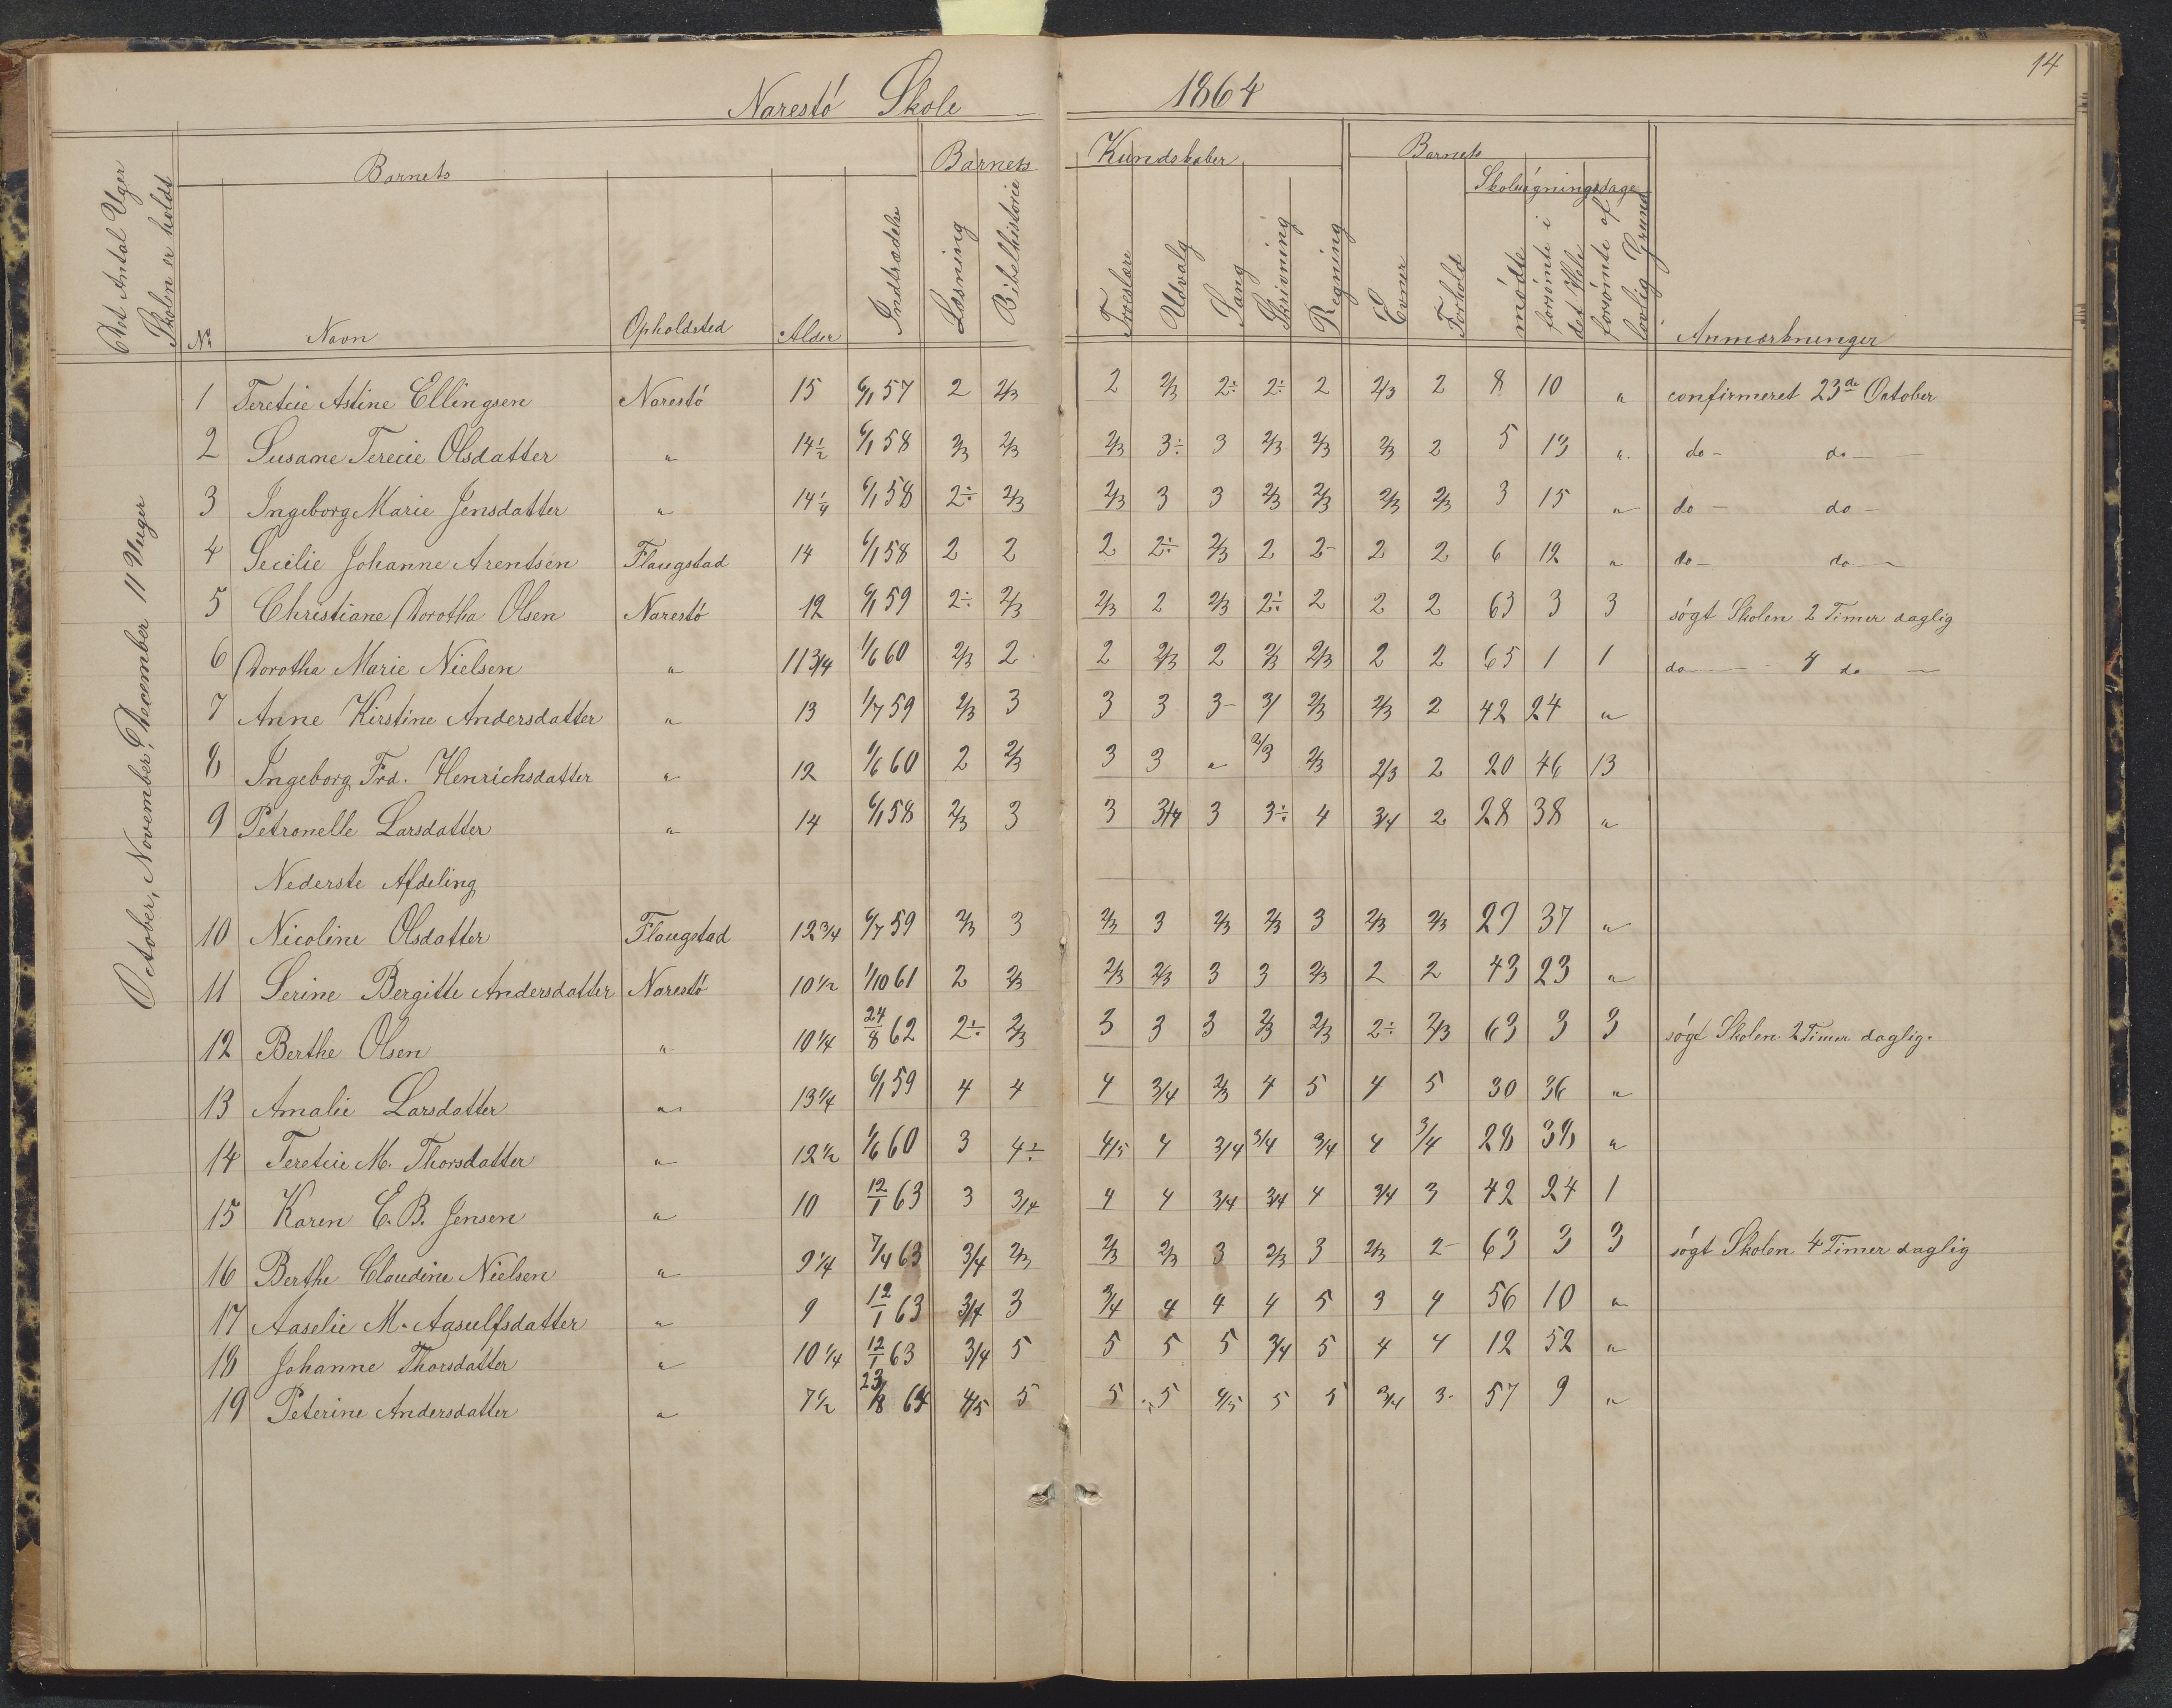 14
Narestö Skole 1864
Det Antal Uger Skolen er holdt
Barnets Barnets Kundskaber Barnets
Skolesøgningsdage
№ Navn Opholdsted Alder Indtrædelse Læsning Bibelhistorie Troeslære Udvalg Sang Skrivning Regning Evner Forhold mødte forsømte i det Hele forsømte af lovlig Grund Anmærkninger
October, November, December 11 Uger
1 Teretcie Astine Ellingsen Narestö 15 6/1 57 2 2/3 2 2/3 2÷ 2÷ 2 2/3 2 8 10 " confirmeret 23de October
2 Susanne Terecie Olsdatter " 14½ 6/1 58 2/3 2/3 2/3 3÷ 3 2/3 2/3 2/3 2 5 13 " do - do -
3 Ingeborg Marie Jensdatter " 14¼ 6/1 58 2÷ 2/3 2/3 3 3 2/3 2/3 2/3 2/3 3 15 " do - do -
4 Secilie Johanne Arentsen Flangstad 14 6/1 58 2 2 2 2÷ 2/3 2 2- 2 2 6 12 " do - do -
5 Christiane Dorotha Olsen Narestö 12 6/1 59 2÷ 2/3 2/3 2 2/3 2÷ 2 2 2 63 3 3 søgt Skolen 2 Timer daglig
6 Dorotha Marie Nielsen " 11 3/4 1/6 60 2/3 2 2 2/3 2 2/3 2/3 2 2 65 1 1 do - 4 do -
7 Anne Kirstine Andersdatter " 13 1/7 59 2/3 3 3 3 3- 3/ 2/3 2/3 2 42 24 "
8 Ingeborg Frd. Henrichsdatter " 12 1/6 60 2 2/3 3 3 " 2/3 2/3 2/3 2 20 46 13
9 Petronelle Larsdatter " 14 6/1 58 2/3 3 3 3/4 3 3÷ 4 3/4 2 28 38 "
Nederste Afdeling
10 Nicoline Olsdatter Flangstad 12 3/4 6/7 59 2/3 3 2/3 3 2/3 2/3 3 2/3 2/3 29 37 "
11 Serine Bergitte Andersdatter Narestö 10½ 1/10 61 2 2/3 2/3 2/3 3 3 2/3 2 2 43 23 "
12 Berthe Olsen " 10¼ 24/8 62 2÷ 2/3 3 3 3 2/3 2/3 2÷ 2/3 63 3 3 søgt Skolen 2 Timer daglig.
13 Amalie Larsdatter " 13¼ 6/1 59 4 4 4 3/4 2/3 4 5 4 5 30 36 "
14 Teretcie M. Thorsdatter " 12½ 1/6 60 3 4÷ 4/5 4 3/4 3/4 3/4 4 3/4 28 38 "
15 Karen E. B. Jensen " 10 12/1 63 3 3/4 4 4 3/4 3/4 4 3/4 3 42 24 1
16 Berthe Claudine Nielsen " 9¼ 7/4 63 3/4 2/3 2/3 2/3 3 2/3 3 2/3 2- 63 3 3 søgt Skolen 4 Timer daglig
17 Aaselie M. Aasulfsdatter " 9 12/1 63 3/4 3 3/4 4 4 4 5 3 4 56 10 "
18 Johanne Thorsdatter " 10¼ 12/1 63 3/4 5 5 5 5 3/4 5 4 4 12 52 "
19 Peterine Andersdatter " 7½ 23/8 64 4/5 5 5 5 4/5 5 5 3/4 3- 57 9 "